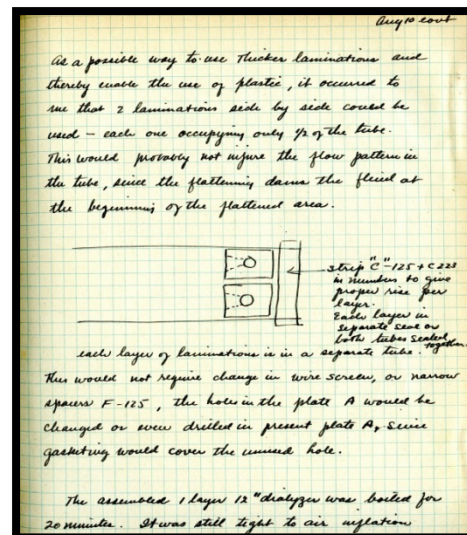 Aug 10 cont
As a possible way to use thicker laminations and
thereby enable the use of plastic, it occurred to
me that 2 laminations side by side could be
used – each one occupying only 1/2 of the tube.
This would probably not injure the flow pattern in
the tube, since the flattening dams the fluid at
the beginning of the flattened area.
strip "C"-125 + C223
in numbers to give
proper rise per
layer.
Each layer in
separate seal or
both tubes sealed
together.
each layer of laminations is in a separate tube.
This would not require change in wire screen, or narrow
spacers F-125, the holes in the plate A would be
changed or even drilled in present plate A, since
gasketing would cover the unused hole.
The assembled 1 layer 12" dialyzer was boiled for
20 minutes. It was still tight to air inflation